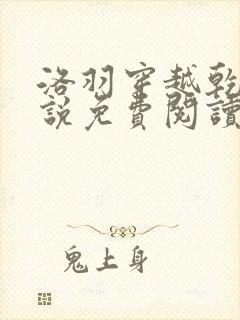 洛羽穿越乾
說免費閱讀
鬼上身